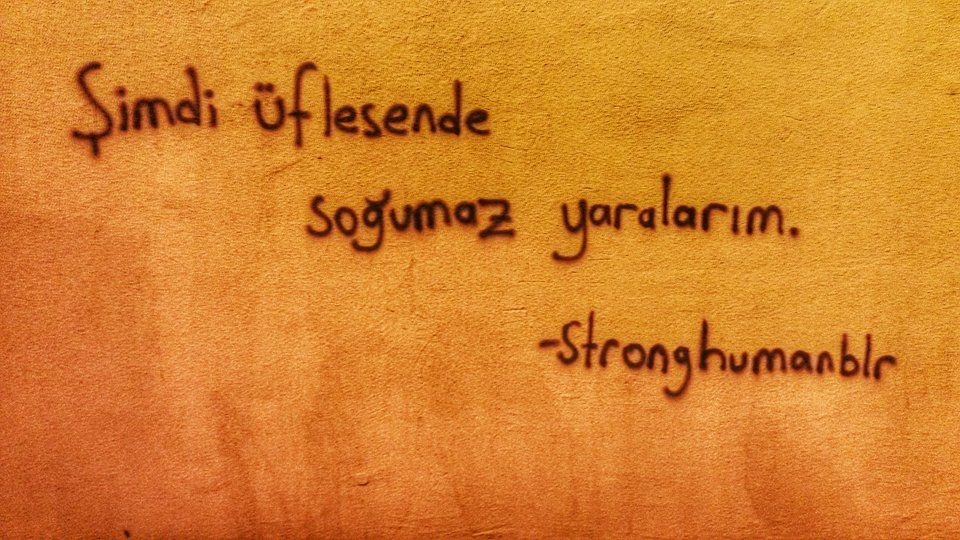 Şimdi üflesende
soğumaz yaralarım.
-Stronghumanblr